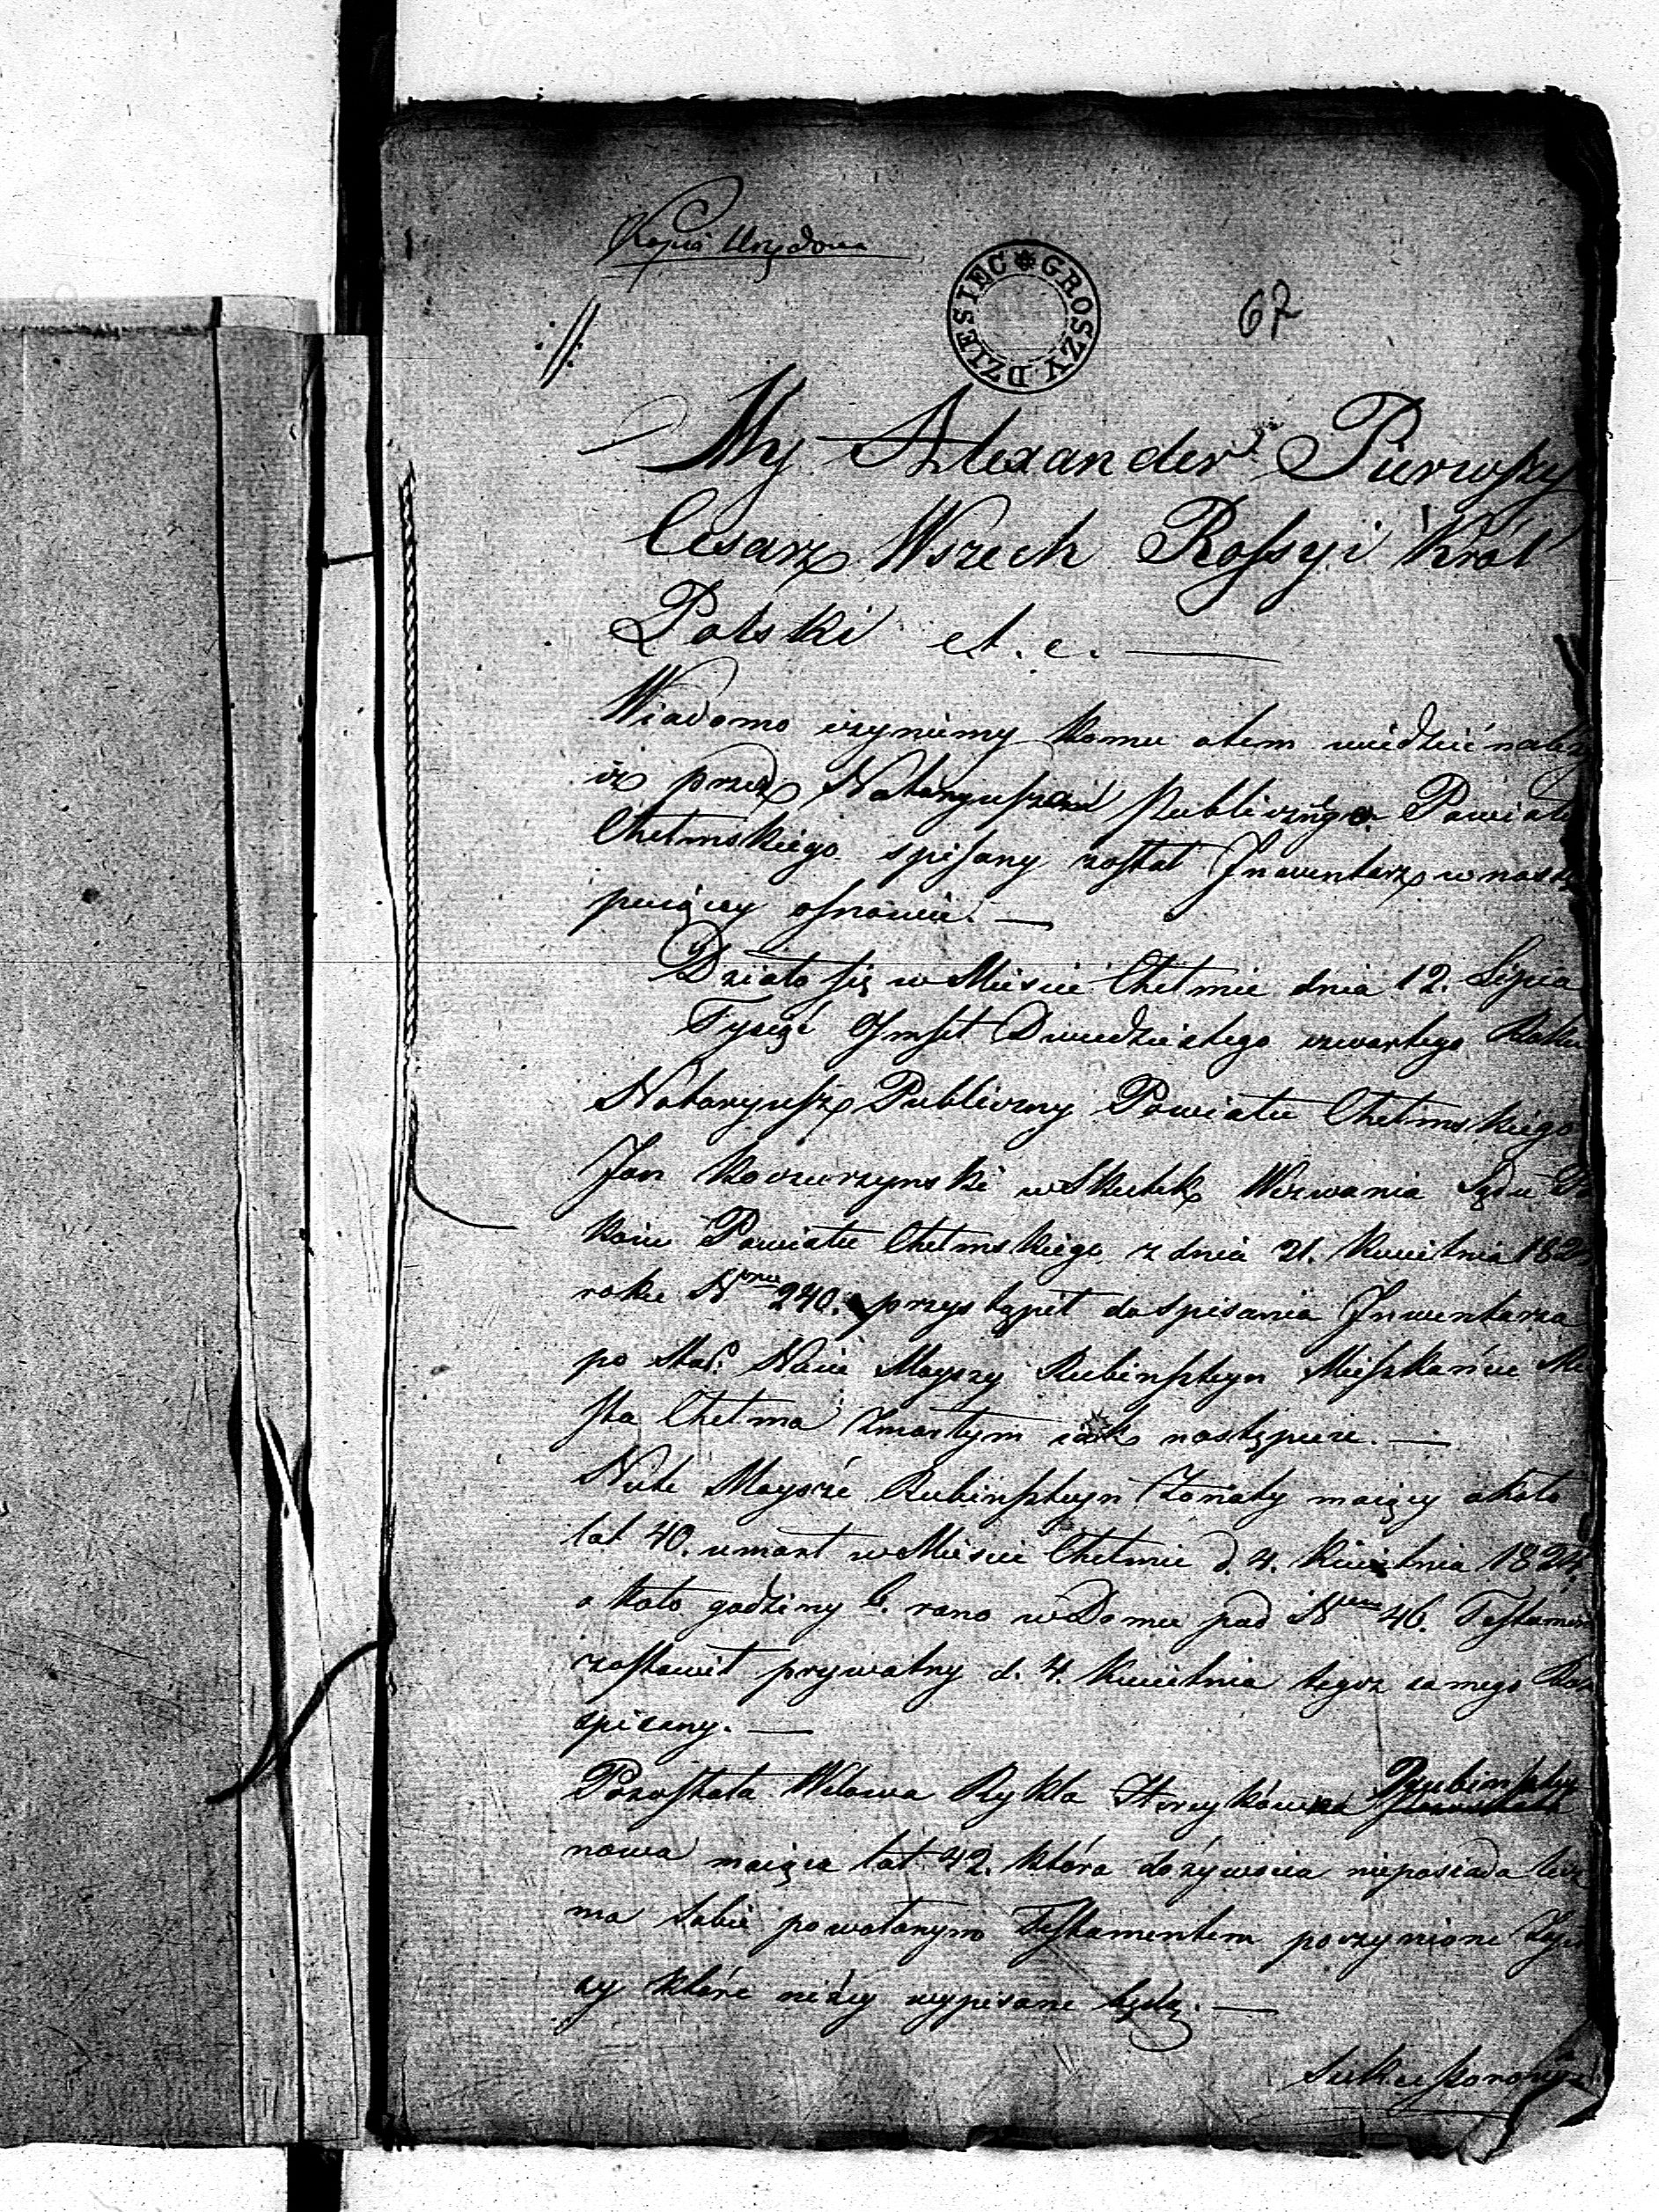 Kopia Urzędowa
GROSZY DZIESIĘC
67
My Alexander Pierwszy
Cesarz Wszech Rossyi Król
Polski et. c.
Wiadomo czyniemy komu otem wiedzieć należy
iż przed Notaryuszem Publicznym Powiatu
Chełmskiego spisany został Inwentarz w nastę
puiący osnowie.
Działo się w Mieście Chełmie dnia 12. Lipca
Tysiąć Osmset Dwudziestego czwartego Roku
Notaryusz Publiczny Powiatu Chełmskiego
Jan Koczurzynski w Skutek Wezwania Sądu Po
koiu Powiatu Chełmskiego z dnia 21. Kwietnia 182
roku Nrm 240. przystąpił do Spisania Inwentarza
po Moyszy Rubinsteyn Mieszkańcu Mia
sta Chełma Zmarłym iak następuie.
Nute Moysze Rubinszteyn Żonaty maiący około
lat 40. umarł w Mieście Chełmie d. 4. Kwietnia 1824.
około godziny 6. rano w Domu pod Nrem 46. Testament
zostawił prywatny d. 4. Kwietnia tegoż samego Roku
spisany.
Pozostała Wdowa Rykla Herszkówna Rubinsztey
nowa maiąca lat 42. która dożywocia nieposiada lecz
ma sobie powołanym Testamentem poczynione
które niżey wypisane będą.